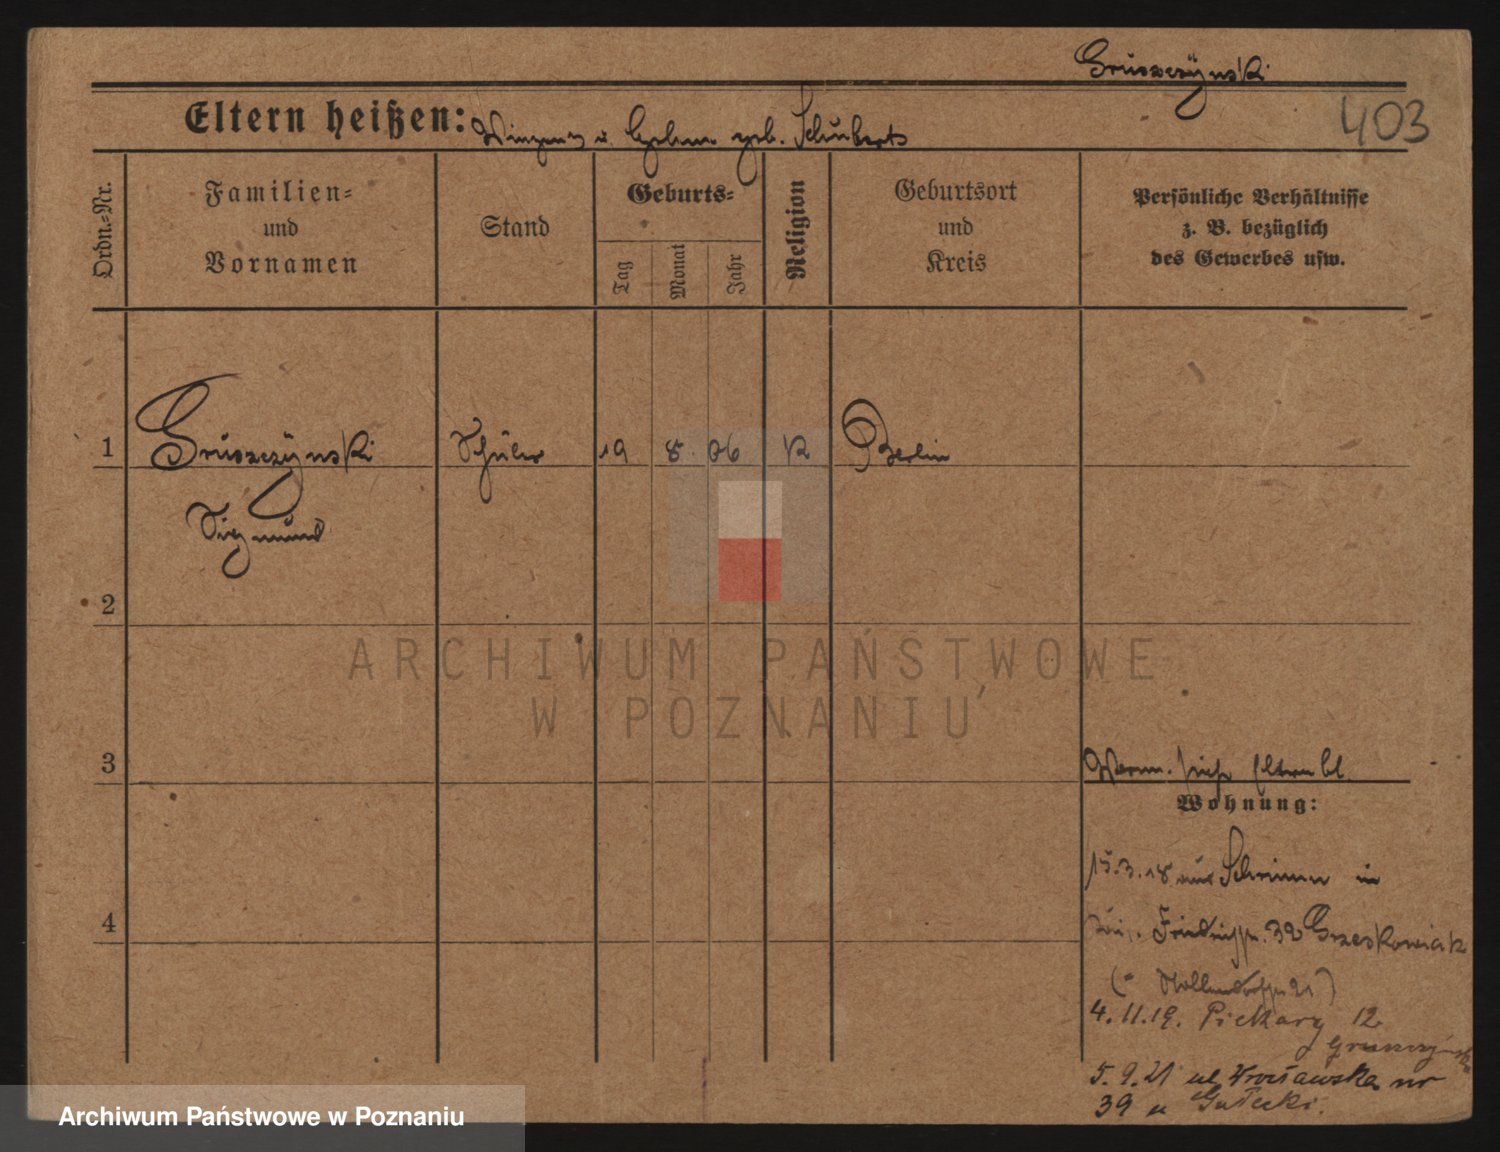 Gruszczÿnski
403
Eltern heißen: Winzent u. geb. Schubert
Ordn.=Nr.
Familien=
und
Vornamen
Stand
Geburts=
Tag
Monat
Jahr
Religion
Geburtsort
und
Kreis
Persönliche Verhältnisse
z. B. bezüglich
des Gewerbes usw.
1 Gruszczÿnski Schüler 19 8. 06 K Berlin
Sigmund
2
3
Verm. siehe Elternbl.
Wohnung:
15.3.18 aus Schrimm in
4
Friedrichstr. 32 Grzeskowiak
4.11.19. Piekary 12
Gruszczyński
5.9.21 ul. Wrocławska nr
39 u Gułecki.
ARCHIWUM PAŃSTWOWE
W POZNANIU
Archiwum Państwowe w Poznaniu